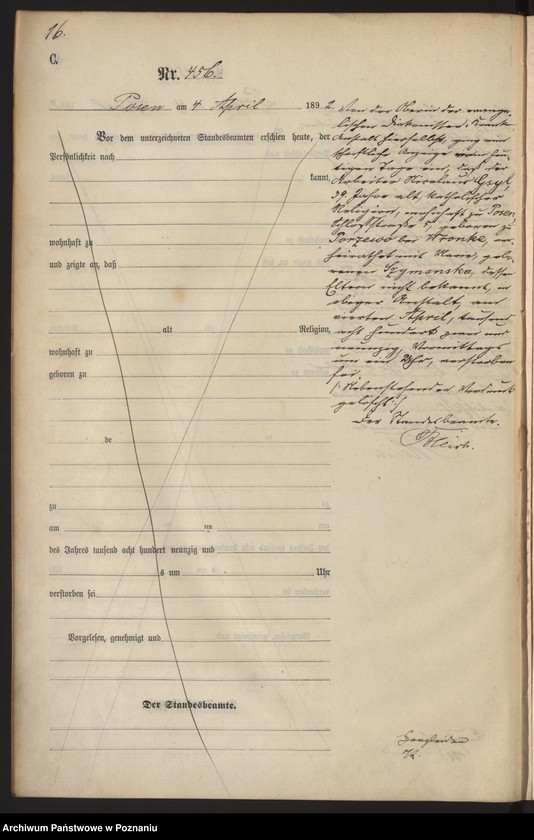 16.
C.
Nr. 456.
Posen am 4 April 1892
Vor dem unterzeichneten Standesbeamten erschien heute, der
Persönlichkeit nach
kannt,
wohnhaft zu
und zeigte an, daß
alt Religion,
wohnhaft zu
geboren zu
de
zu
am ten
des Jahres tausend acht hundert neunzig und
s um Uhr
verstorben sei
Vorgelesen, genehmigt und
Der Standesbeamte.
Von der Oberin der evange-
lischen Diakonissen-Kranken-
Anstalt hierselbst, ging ein
schriftliche Anzeige vom heu-
tigen Tage ein, daß der
Arbeiter Nicolaus Gzyl,
39 Jahre alt, katholischer
Religion, wohnhaft zu Posen,
Schloßstraße geboren zu
Porzewo bei Wronke, ver-
heirathet mit Marie, gebo-
renen Szymanska, dessen
Eltern nicht bekannt, in
obiger Anstalt, am
vierten April, tausend
acht hundert zwei und
neunzig, Vormittags
um ein Uhr, verstorben
sei.
/: Nebenstehender Vordruck
gelöscht :/
Der Standesbeamte.